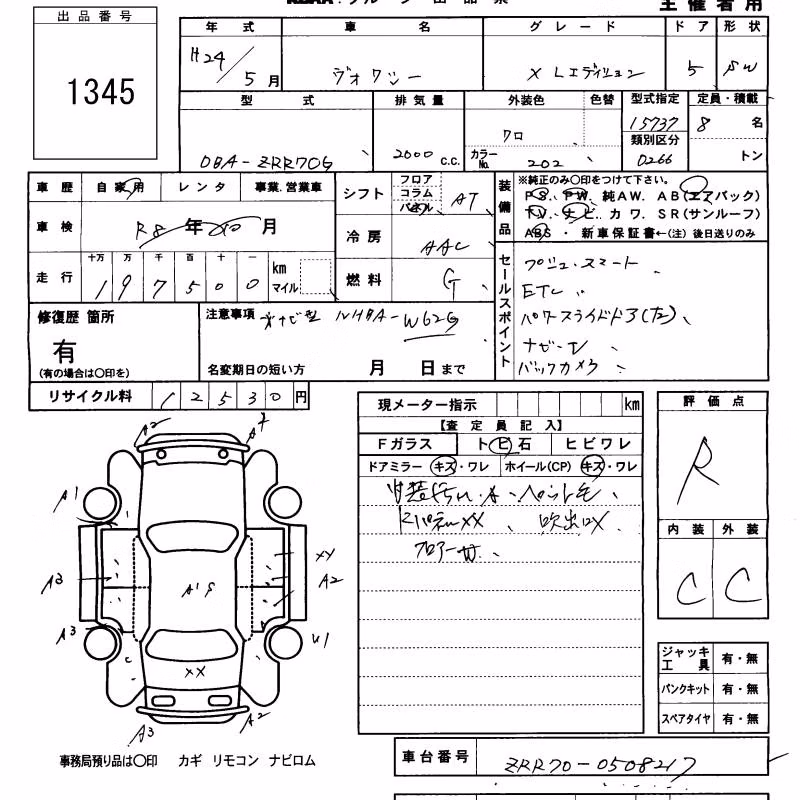 出品番号
1345
年式 車名 グレード ドア 形状
H24/5月 ヴォクシー X Lエディション 5 SW
型式 排気量 外装色 色替 型式指定 定員・積載
DBA-ZRR70G 2000 C.C. クロ 15737 8 名
カラーNo. 202 類別区分 0266 トン
車歴 自家用 レンタ 事業.営業車
シフト フロア コラム パネル AT
装備品 ※純正のみ〇印をつけて下さい。
PS、PW、純AW、AB(エアバック)
TV、ナビ、カワ、SR(サンルーフ)
ABS・新車保証書←(注)後日送りのみ
車検 R8年10月
冷房 AAC
走行 十万 万 千 百 十 一
197500 km マイル
燃料 G
セールスポイント
プッシュ・スマート
ETC
パワースライドドア(左)
ナビ・TV
バックカメラ
修復歴 箇所
有
(有の場合は〇印を)
注意事項 ナビ型 NHBA-W62G
名変期日の短い方 月 日まで
リサイクル料 12530円
現メーター指示 km
【査定員記入】
Fガラス トビ石 ヒビワレ
ドアミラー キズ・ワレ ホイール(CP) キズ・ワレ
内装汚れ・キ・ペット毛
Rパネルxx、吹出口X
フロアーサ
評価点
R
内装 外装
C C
A2
A1
A3
A1S
XX
A2
A3
U1
XX
A3
A2
ジャッキ工具 有・無
パンクキット 有・無
スペアタイヤ 有・無
事務局預り品は〇印 カギ リモコン ナビロム
車台番号 ZRR70-0508217